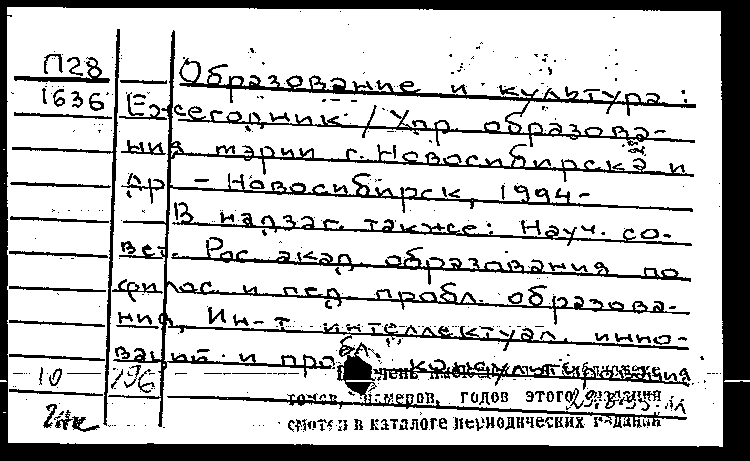 П28
Образование и культура:
1636 Ежегодник / Упр. образова-
ния мэрии г. Новосибирска и
др. - Новосибирск, 1994-
В надзаг. также: Науч. со-
вет. Рос. акад. образования по
филос. и пед. пробл. образова-
ния, Ин-т интеллектуал. инно-
ваций и пробл.
10 196
томов, номеров, годов этого издания
смотри в каталоге периодических изданий